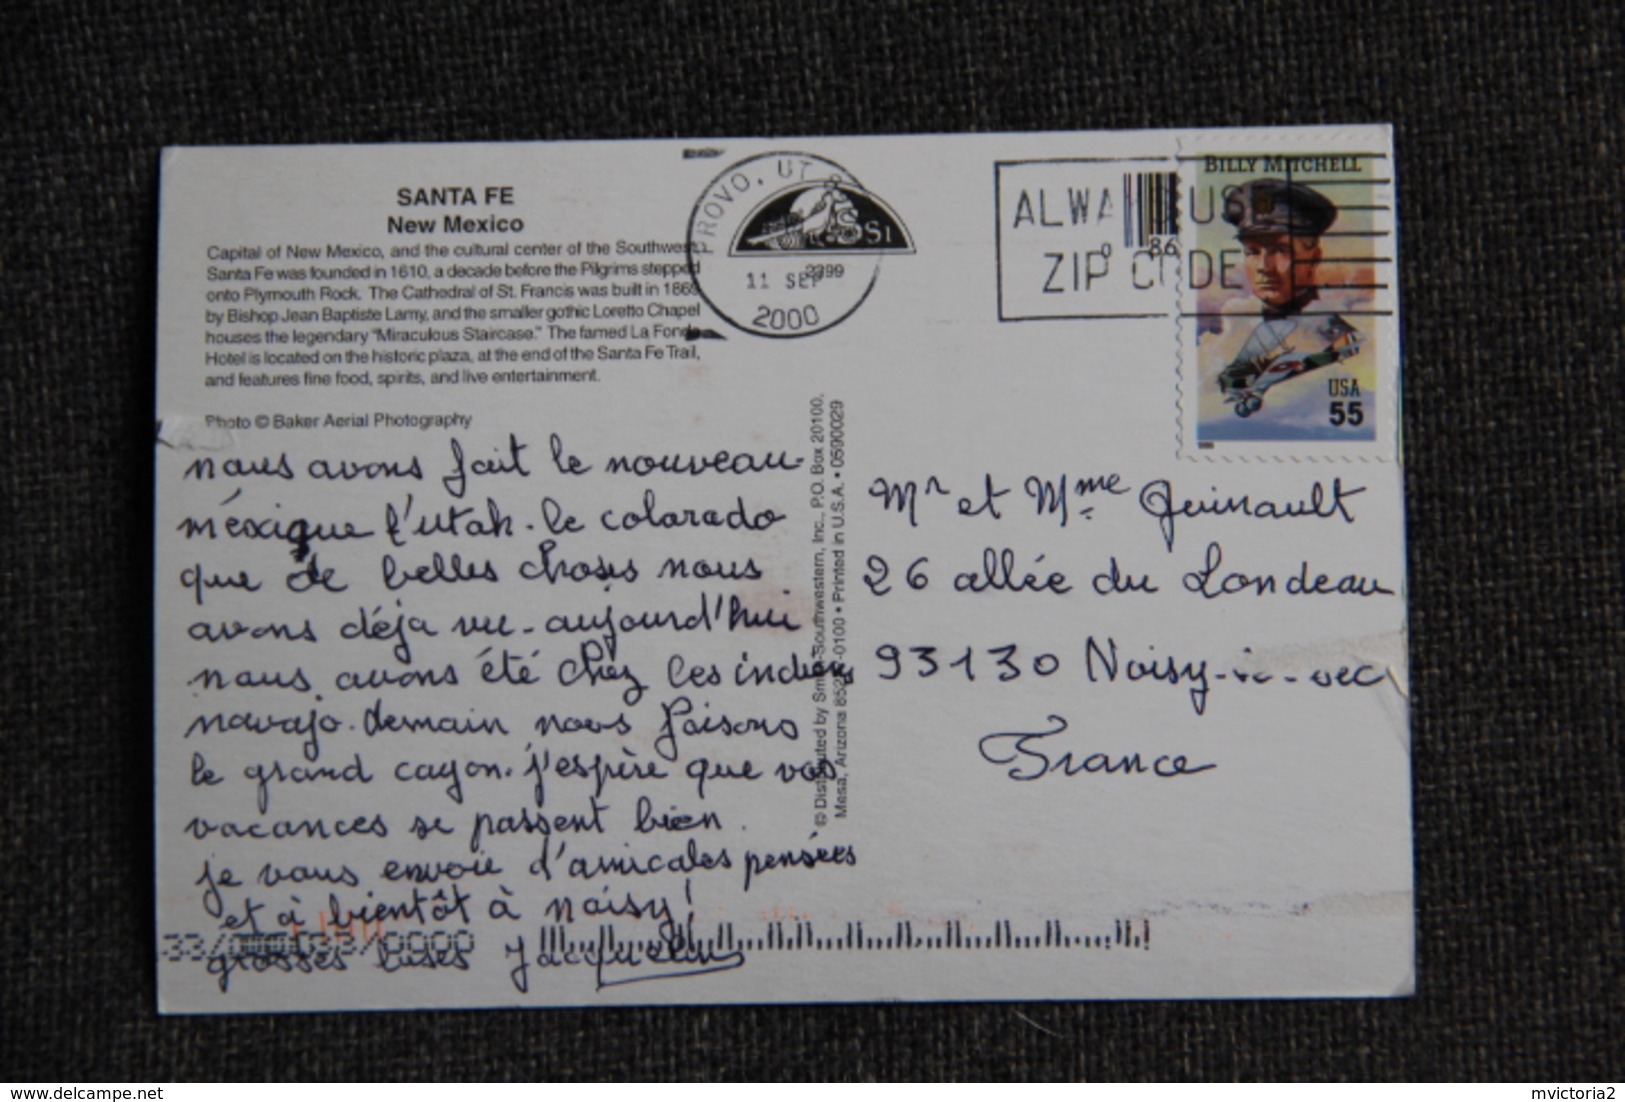 SANTA FE
New Mexico
Capital of New Mexico, and the cultural center of the Southwest,
Santa Fe was founded in 1610, a decade before the Pilgrims stepped
onto Plymouth Rock. The Cathedral of St. Francis was built in 1869
by Bishop Jean Baptiste Lamy, and the smaller gothic Loretto Chapel
houses the legendary "Miraculous Staircase." The famed La Fonda
Hotel is located on the historic plaza, at the end of the Santa Fe Trail,
and features fine food, spirits, and live entertainment.
Photo © Baker Aerial Photography
PROVO, UT
11 SEP
2000
2399
SSI
ALWAYS USE
ZIP CODE
0 86
BILLY MITCHELL
USA
55
nous avons fait le nouveau-
méxique l'utah. le colorado
que de belles choses nous
avons déja vu. aujourd'hui
nous avons été chez les indiens
navajo. demain nous faisons
le grand cayon. j'espère que vos
vacances se passent bien.
je vous envoie d'amicales pensées
et à bientôt à noisy!
grosses bises Jacqueline
33/0000
© Distributed by Smith-Southwestern, Inc., P.O. Box 20100,
Mesa, Arizona 85277-0100 • Printed in U.S.A. • 0590029
Mr et Mme Guinault
26 allée du Londeau
93130 Noisy-le-sec
France
mvictoria2